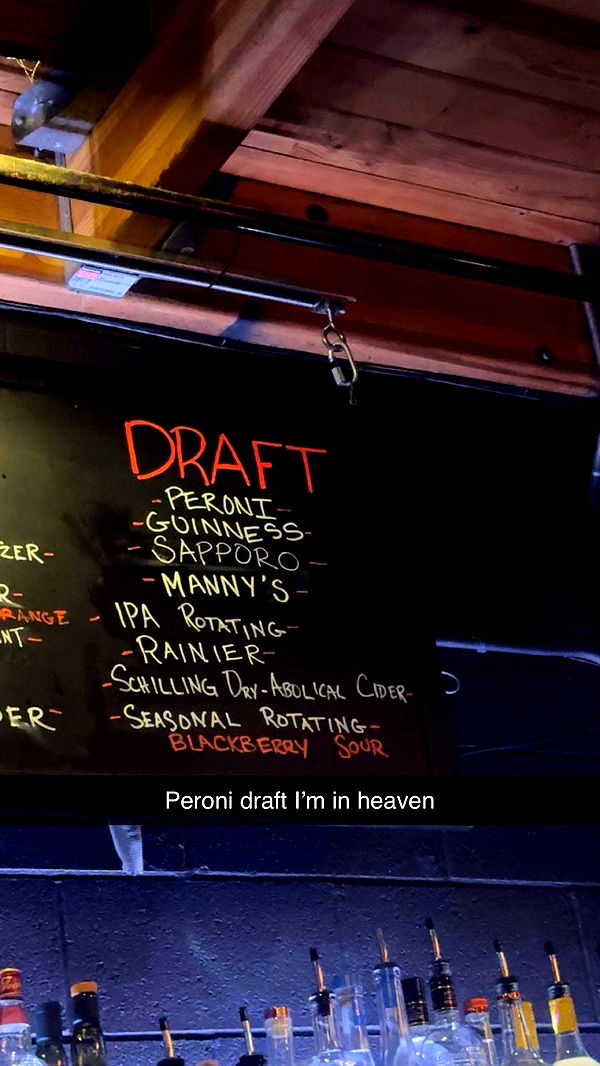 DRAFT
-PERONI-
-GUINNESS-
-SAPPORO-
-MANNY'S-
-IPA ROTATING-
-RAINIER-
-SCHILLING DRY-ABOLICAL CIDER-
-SEASONAL ROTATING-
BLACKBERRY SOUR
ZER-
R-
RANGE
NT-
DER-
Peroni draft I'm in heaven